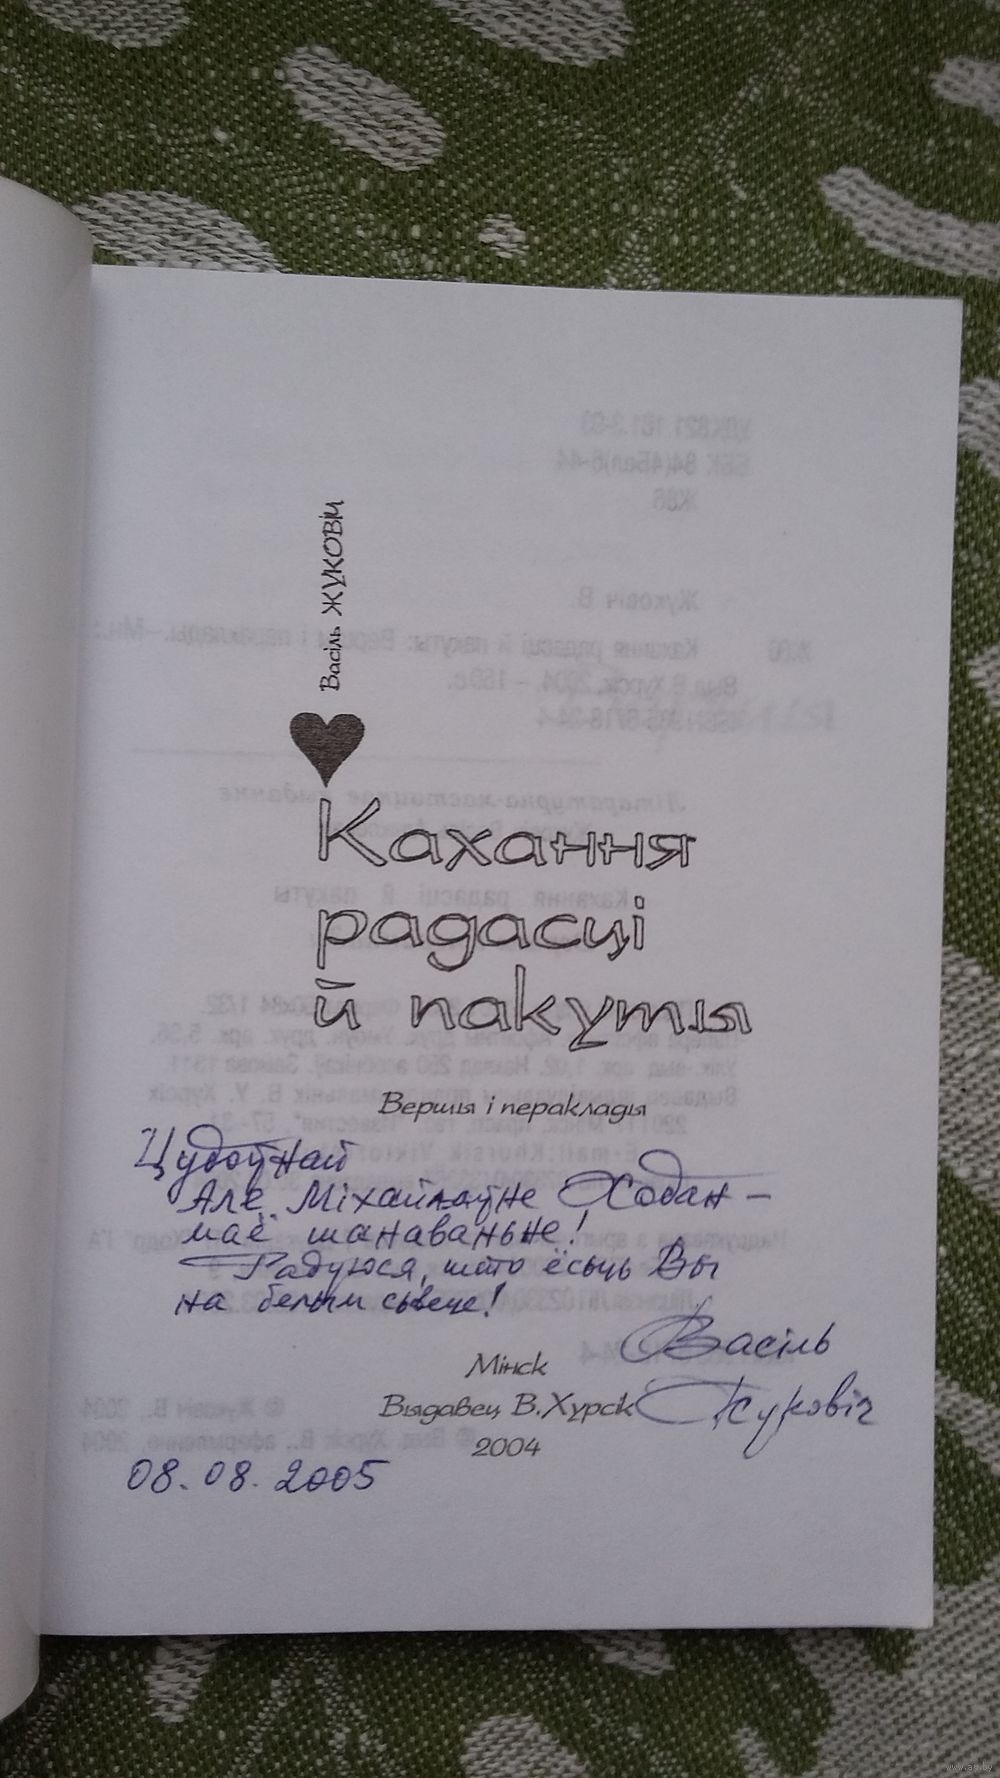 Васіль ЖУКОВІЧ
Кахання
радасці
й пакуты
Вершы і пераклады
Цудоўнай
Але Міхайлаўне Ходан –
маё шанаваньне!
Радуюся, што ёсьць Вы
на белым сьвеце!
Васіль
Жуковіч
Мінск
Выдавец В.Хурсік
2004
08.08.2005
www.ay.by